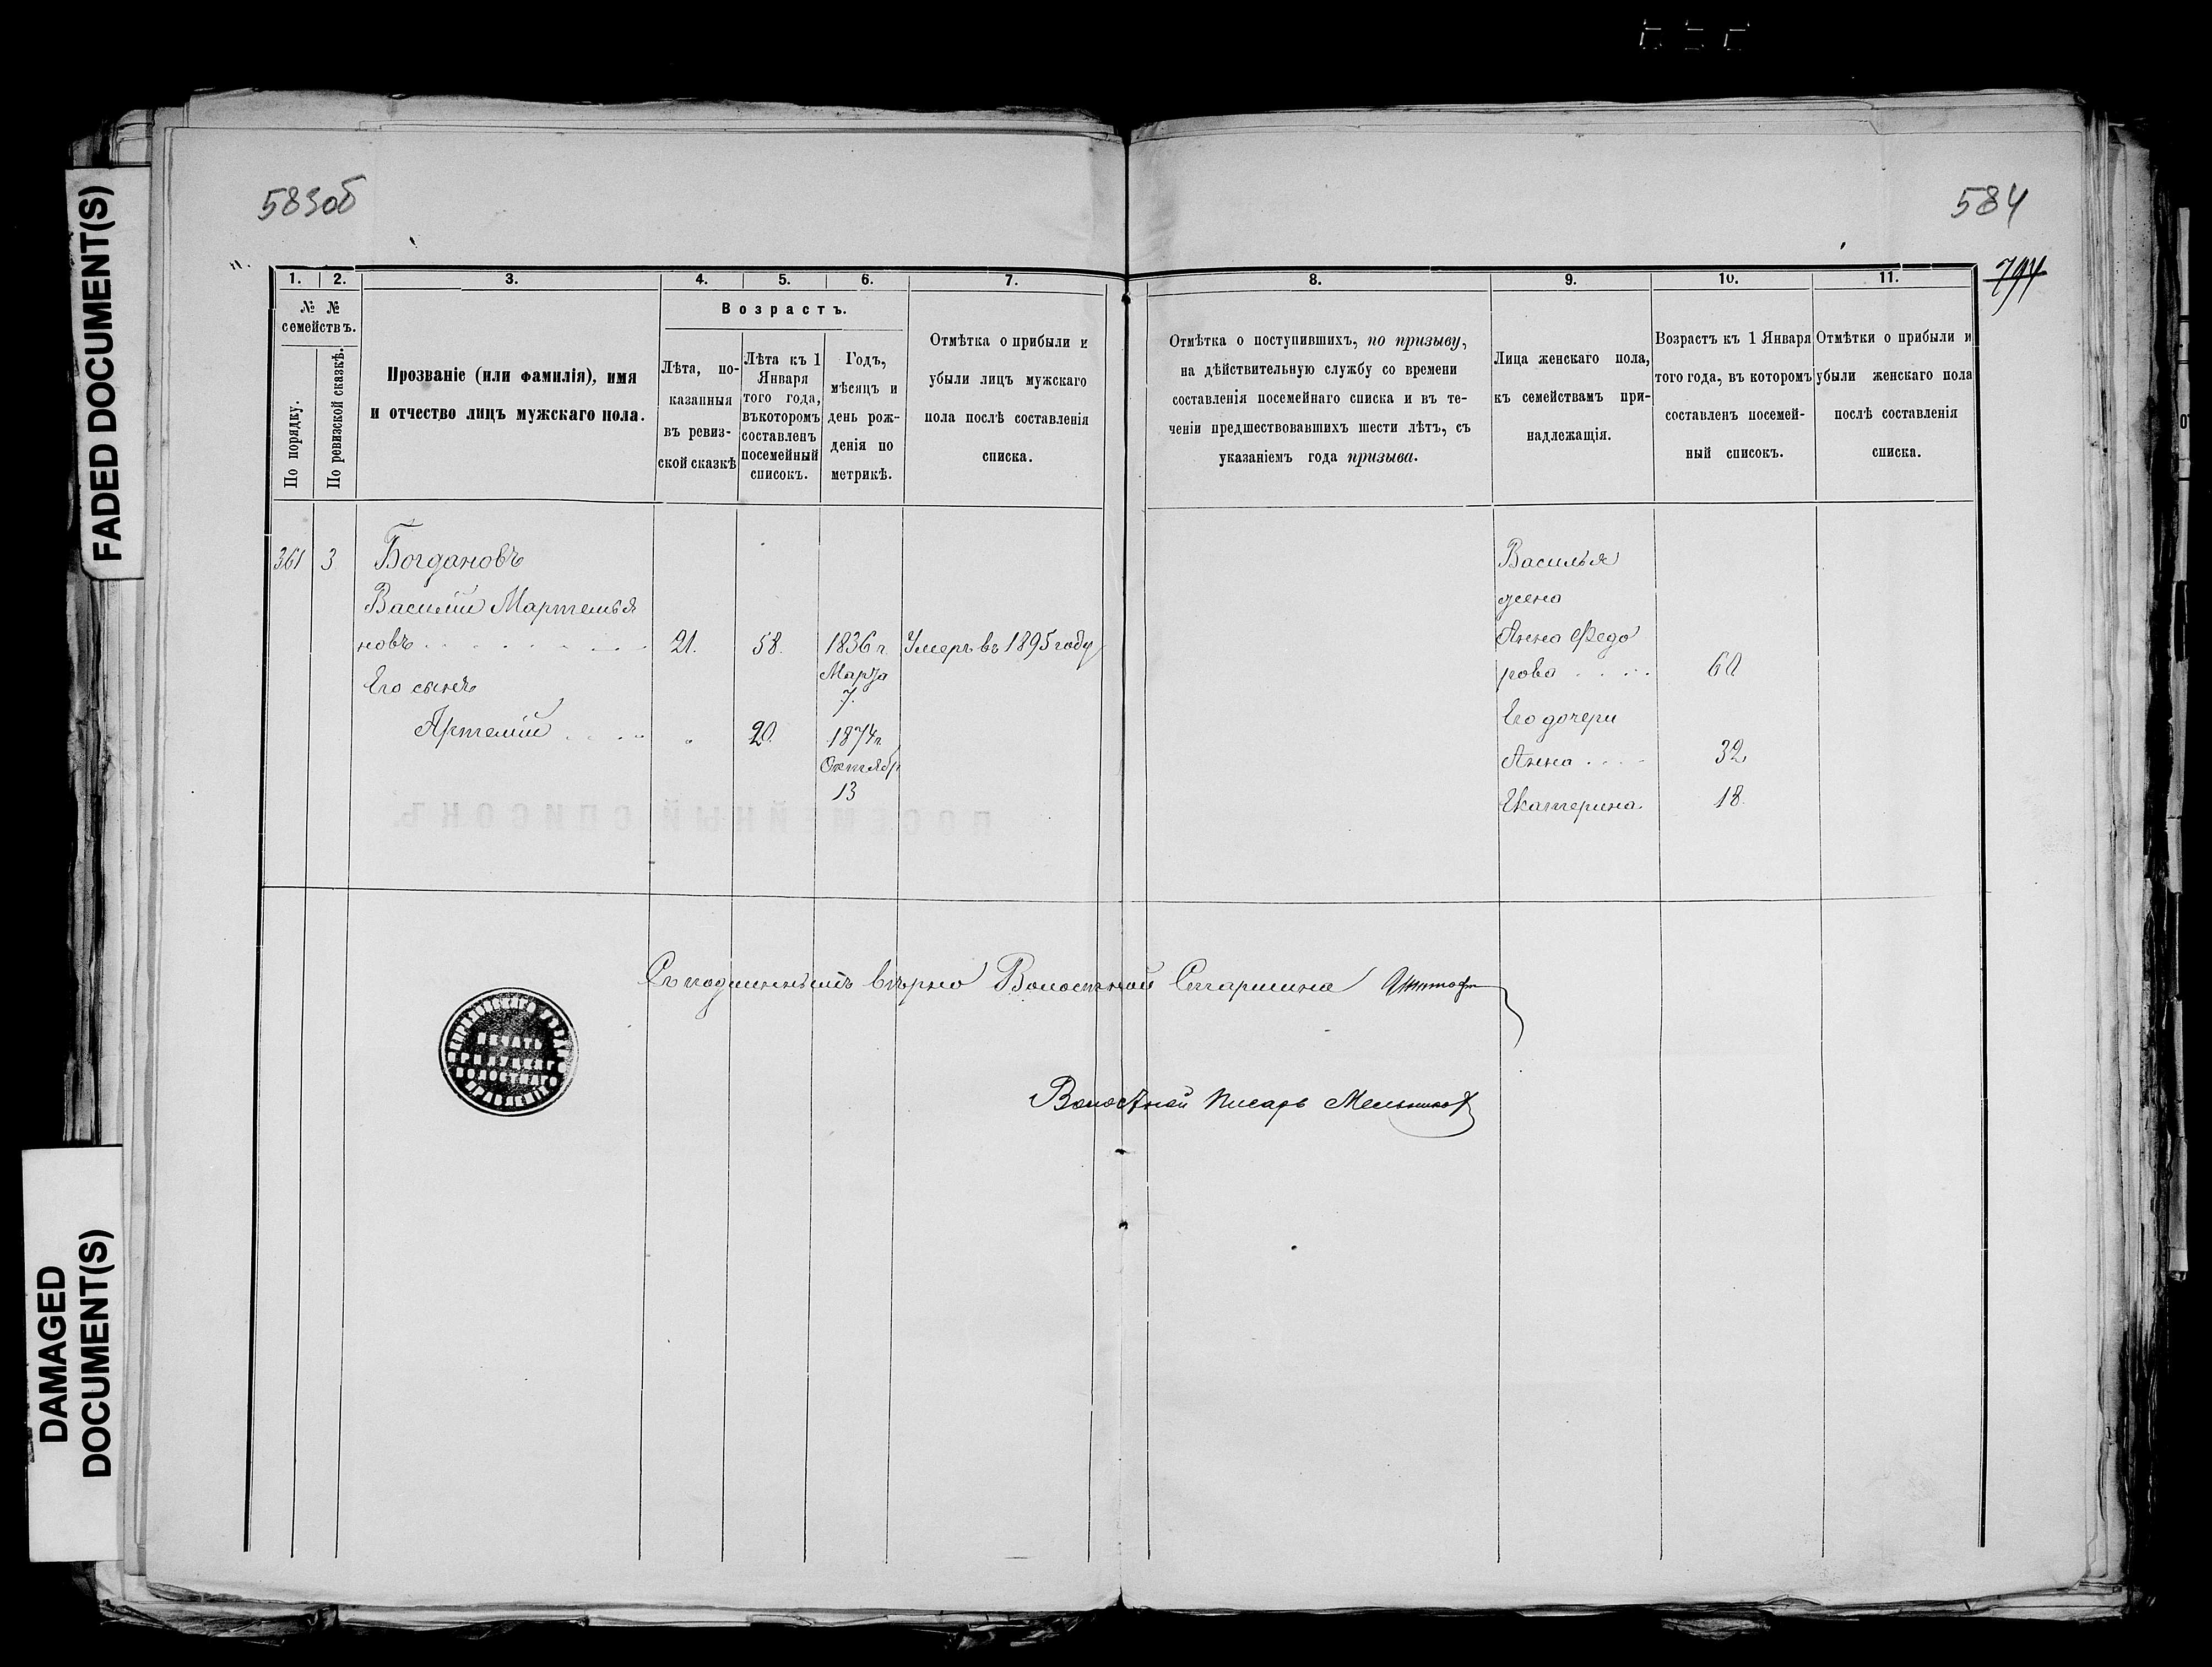 583об
584
FADED DOCUMENT(S)
DAMAGED
DOCUMENT(S)
1. 2. 3. 4. 5. 6. 7.
№ №
семействъ.
По порядку.
По ревизской сказкѣ.
Прозваніе (или фамилія), имя
и отчество лицъ мужскаго пола.
Возрастъ.
Лѣта, по-
казанныя
въ ревиз-
ской сказкѣ
Лѣта къ 1
Января
того года,
въ которомъ
составленъ
посемейный
списокъ.
Годъ,
мѣсяцъ и
день рож-
денія по
метрикѣ.
Отмѣтка о прибыли и
убыли лицъ мужскаго
пола послѣ составленія
списка.
8. 9. 10. 11.
Отмѣтка о поступившихъ, по призыву,
на дѣйствительную службу со времени
составленія посемейнаго списка и въ те-
ченіи предшествовавшихъ шести лѣтъ, съ
указаніемъ года призыва.
Лица женскаго пола,
къ семействамъ при-
надлежащія.
Возрастъ къ 1 Января
того года, въ которомъ
составленъ посемей-
ный списокъ.
Отмѣтки о прибыли и
убыли женскаго пола
послѣ составленія
списка.
361 3 Богдановъ
Василій Мартемья
новъ 21. 58. 1836 г. Умеръ въ 1895 году
Марта
7.
Его сынъ
Артемій " 20. 1874 г.
Октябр
13
Василья
жена
Анна Федо
рова 60
Его дочери
Анна 32
Екатерина 18.
ПОСЕМЕЙНЫЙ СПИСОКЪ.
Съ подлиннымъ вѣрно Волостной Старшина
Волостной Писарь Мельников
ПЕЧАТЬ
ВОЛОСТНАГО
ПРАВЛЕНІЯ